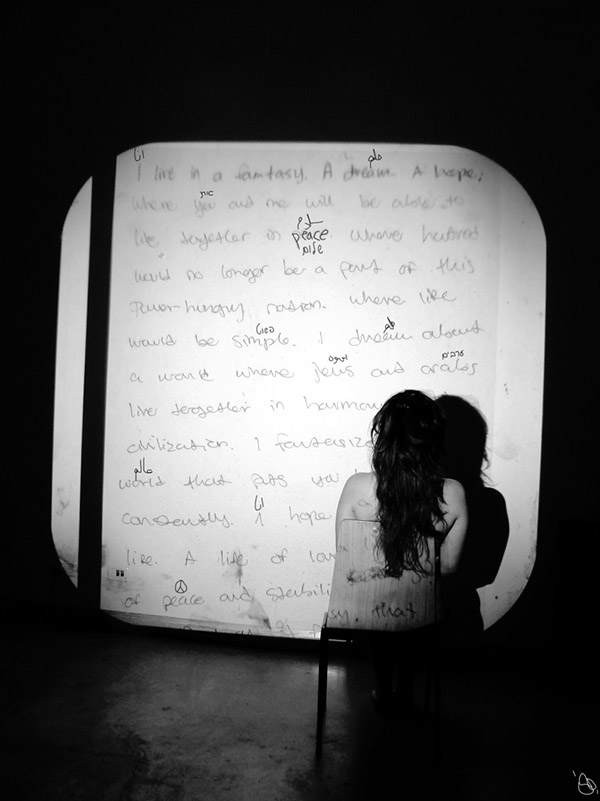 انا حلم
I live in a fantasy. A dream. A hope;
where you and me will be able to
سلام
live together in peace. where hatred
שלום
would no longer be a part of this
Power-hungry nation. where life
פשוט حلم
would be simple. I dream about
יהודים ערבים
a world where jews and arabs
live together in harmon
civilization. I fantasize
عالم
world that puts you
انا
constantly. I hope
life. A life of
of peace and stabili
that